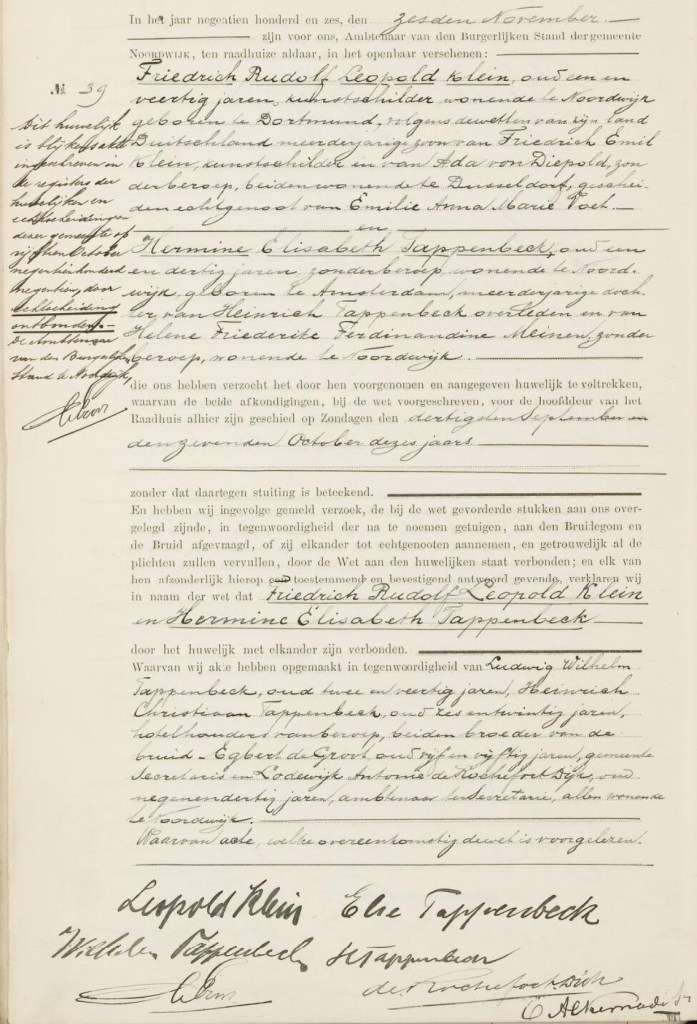 In het jaar negentien honderd en zes, den zesden November.
zijn voor ons, Ambtenaar van den Burgerlijken Stand der gemeente
Noordwijk, ten raadhuize aldaar, in het openbaar verschenen:
Friedrich Rudolf Leopold Klein, oud een en
veertig jaren, kunstschilder, wonende te Noordwijk
geboren te Dortmund, volgens de wetten van zijn land
Duitschland meerderjarige zoon van Friedrich Emil
Klein, kunstschilder en van Ada von Diepold, zon
der beroep, beiden wonende te Dusseldorf, geschei-
den echtgenoot van Emilie Anna Marie
en
Hermine Elisabeth Tappenbeck, oud een
en dertig jaren, zonder beroep, wonende te Noord-
wijk, geboren te Amsterdam, meerderjarige doch
ter, van Heinrich Tappenbeck overleden en van
Helene Friederike Ferdinandine Meinen, zonder
beroep, wonende te Noordwijk.
№ 39
Dit huwelijk
is blijkens akte
ingeschreven in
de registers der
huwelijken en
echtscheidingen
dezer gemeente op
vijftien October
negentienhonderd
negentien, door
echtscheiding
ontbonden.
De Ambtenaar
van den Burgerlijken
Stand te Noordwijk,
die ons hebben verzocht het door hen voorgenomen en aangegeven huwelijk te voltrekken,
waarvan de beide afkondigingen, bij de wet voorgeschreven, voor de hoofddeur van het
Raadhuis alhier zijn geschied op Zondagen den dertigsten September en
den zevenden October dezes jaars
zonder dat daartegen stuiting is beteekend.
En hebben wij ingevolge gemeld verzoek, de bij de wet gevorderde stukken aan ons over-
gelegd zijnde, in tegenwoordigheid der na te noemen getuigen, aan den Bruidegom en
de Bruid afgevraagd, of zij elkander tot echtgenooten aannemen, en getrouwelijk al de
plichten zullen vervullen, door de Wet aan den huwelijken staat verbonden; en elk van
hen afzonderlijk hierop een toestemmend en bevestigend antwoord gevende, verklaren wij
in naam der wet dat Friedrich Rudolf Leopold Klein
en Hermine Elisabeth Tappenbeck
door het huwelijk met elkander zijn verbonden.
Waarvan wij akte hebben opgemaakt in tegenwoordigheid van Ludwig Wilhelm
Tappenbeck, oud twee en veertig jaren, Heinrich
Christiaan Tappenbeck, oud zes en twintig jaren,
hotelhouders van beroep, beiden broeder van de
bruid - Egbert de Groot, oud vijf en vijftig jaren, gemeente
Secretaris en Lodewijk Antonie de Rochefort Dijk, oud
negenendertig jaren, ambtenaar ter Secretarie, allen wonende
te Noordwijk.
Waarvan acte, welke overeenkomstig de wet is voorgelezen.
Leopold Klein Else Tappenbeck
Wilhelm Tappenbeck H Tappenbeck
de Rochefort Dijk